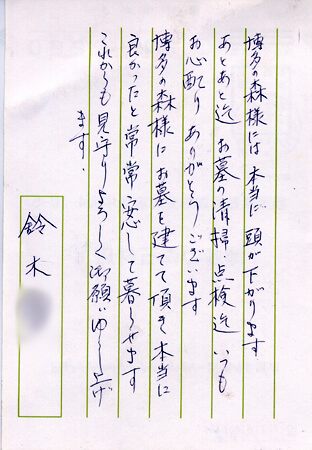 博多の森様には 本当に 頭が下がります
あとあと迄 お墓の清掃・点検迄 いつも
お心配り ありがとうございます
博多の森様に お墓を建てて頂き 本当に
良かったと常常 安心して暮らせます
これからも 見守りよろしく御願い申し上げ
ます.
鈴木